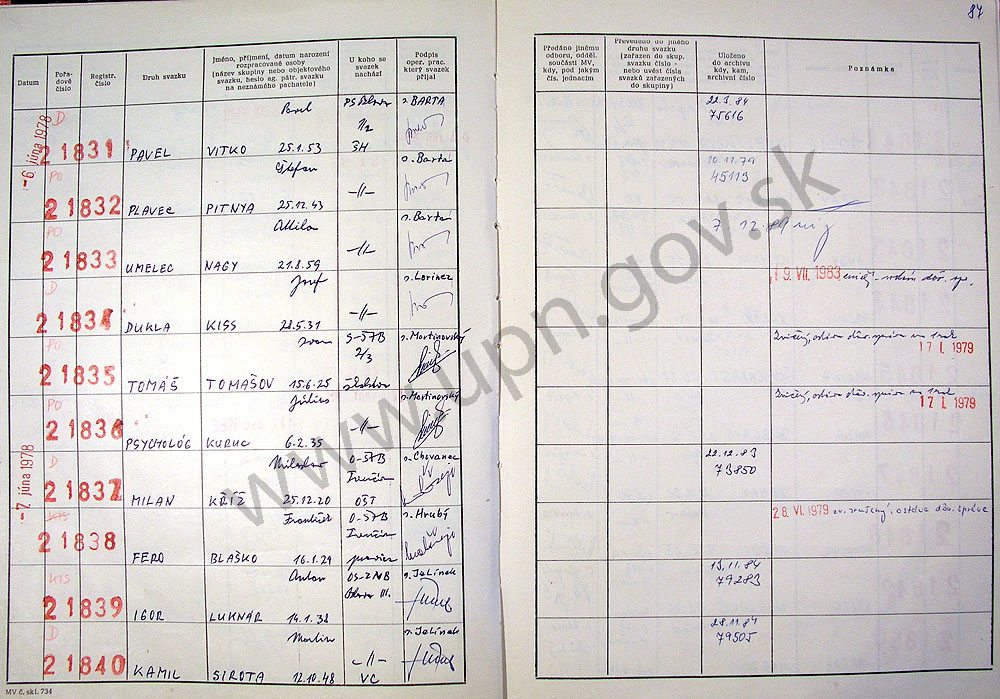 87
Datum
Pořadové číslo
Registr. číslo
Druh svazku
Jméno, příjmení, dátum narození rozpracované osoby (název skupiny nebo objektového svazku, heslo ag. pátr. svazku na neznámého pachatele)
U koho se svazek nachází
Podpis oper. prac. který svazek přijal
Předáno jinému odboru, odděl. součásti MV, kdy, pod jakým čís. jednacím
Převedeno do jiného druhu svazku (zařazen do skup. svazku číslo - nebo uvést čísla svazků zařazených do skupiny)
Uloženo do archivu kdy, kam, archivní číslo
Poznámka
-6. júna 1978
D
21831 PAVEL VITKO Pavel 25.1.53 1/2 ŠH BARTA
22.3.84
75616
PO
21832 PLAVEC PITNYA Štefan 25.12.43 -//- Barta
10.11.79
45113
PO
21833 UMELEC NAGY Attila 21.8.59 -//- Bartá
D
21834 DUKLA KISS Jozef 28.5.31 -//- Lorinez
19. VII. 1983
PO
21835 TOMÁŠ TOMAŠOV Ivan 15.6.25 S-ŠTB 2/3 Martinovský
17 I. 1979
PO
21836 PSYCHOLÓG KURUC Július 6.2.35 -//- Martinovský
17 I. 1979
-7. júna 1978
D
21837 MILAN KŘÍŽ Miloslav 25.12.20 O-ŠTB Trenčín OŠT Chovanec
22.12.83
73850
KTS
21838 FERO BLAŠKO František 16.1.29 O-ŠTB Trenčín Hrubý
28. VI. 1979
KTS
21839 IGOR LUKNÁR Anton 14.1.38 Jelínek
13.11.84
79283
D
21840 KAMIL SIROTA Martin 12.10.48 -//- VC Jelínek
28.11.84
79505
MV č. skl. 734
www.upn.gov.sk